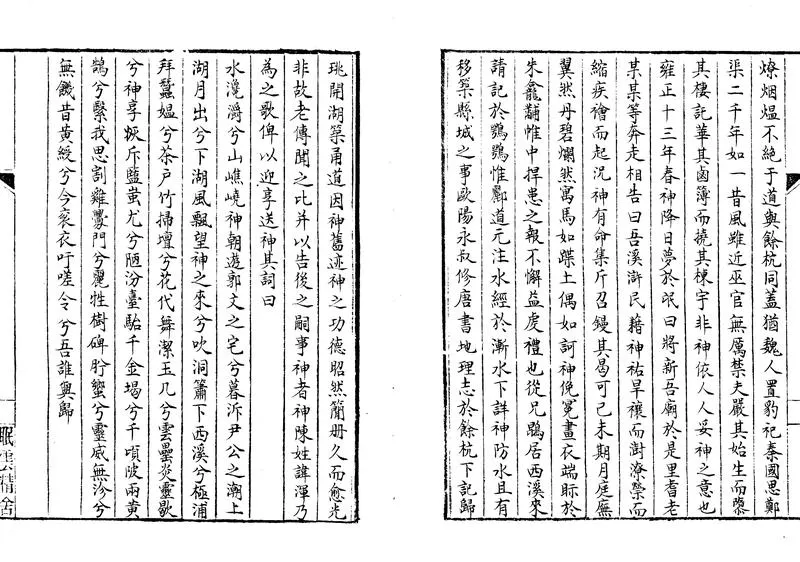 燎烟熅不絶于道與餘杭同蓋猶魏人置豹祀秦國思鄭
渠二千年如一昔風雖近巫官無厲禁夫嚴其始生而隳
其棲託華其鹵簿而撓其棟宇非神依人人妥神之意也
雍正十三年春神降日夢於氓曰將新吾廟於是里耆老
某某等奔走相告曰吾溪滸民藉神祐旱禳而澍潦禜而
縮疾禬而起況神有命集斤召鏝其曷可已未期月庭廡
翼然丹碧爛然寓馬如蹀土偶如訶神俛冕晝衣端眎於
朱龕黼帷中捍患之報不懈益虔禮也從兄鶚居西溪來
請記於鶚鶚惟酈道元注水經於漸水下詳神防水且有
移築縣城之事歐陽永叔修唐書地理志於餘杭下記歸
珧開湖築甬道因神舊迹神之功德昭然簡册久而愈光
非故老傳聞之比并以告後之嗣事神者神陳姓諱渾乃
為之歌俾以迎享送神其詞曰
水漨濪兮山嶕嶢神朝遊郭文之宅兮暮泝尹公之潮上
湖月出兮下湖風飄望神之來兮吹洞簫下西溪兮極浦
拜蠶媪兮茶戶竹掃壇兮花代舞潔玉几兮雲罍炎靈歇
兮神享帙斥鹽蚩尤兮陋汾臺駘千金堨兮千頃陂兩黄
鵠兮繄我思割雞釁門兮麗牲樹碑肸蠁兮靈感無沴兮
無饑昔黄綬兮今衮衣吁嗟令兮吾誰與歸
眠雲精舍